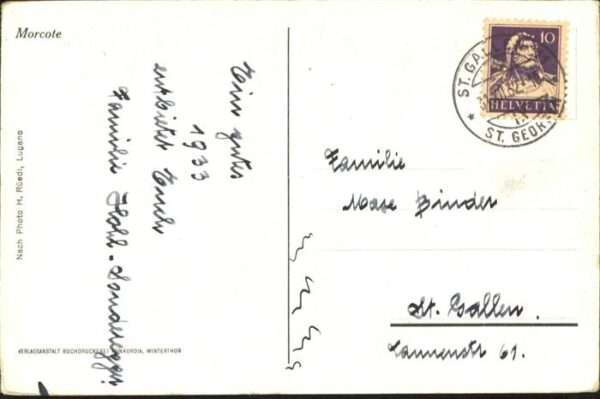 Morcote
Ein gutes
1933
entbietet Euch
Familie Hohl-Sonderegger
Nach Photo H. Rüedi, Lugano
VERLAGSANSTALT BUCHDRUCKEREI KONKORDIA, WINTERTHUR
10
HELVETIA
ST. GALLEN
ST. GEORGEN
Familie
Max Binder
St. Gallen.
Tannenstr 61.